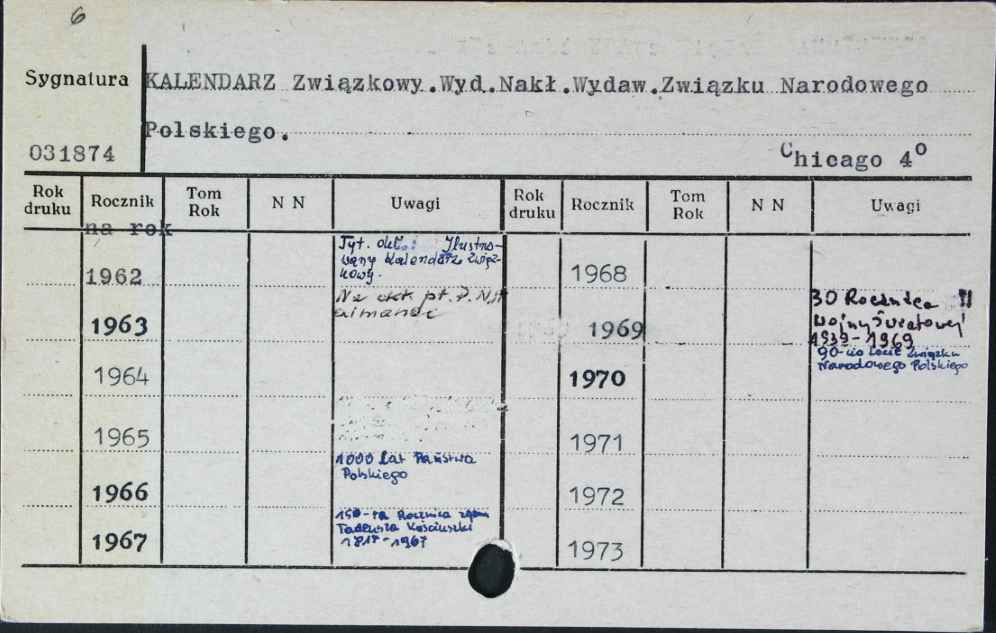 6
Sygnatura KALENDARZ Związkowy.Wyd.Nakł.Wydaw.Związku Narodowego
Polskiego.
031874 Chicago 4°
Rok druku Rocznik Tom Rok N N Uwagi Rok druku Rocznik Tom Rok N N Uwagi
na rok
1962 Tyt. okł.: Ilustro-
wany Kalendarz Związ-
kowy.
1968
1963 Na okł pt. P.N.A
almanac
1969 30 Rocznica II
Wojny Światowej
1939-1969
90-cio lecie Związku
Narodowego Polskiego
1964
1970
1965
1971
1966 1000 Lat Państwa
Polskiego
1972
1967 150-ta Rocznica zgonu
Tadeusza Kościuszki
1817-1967
1973